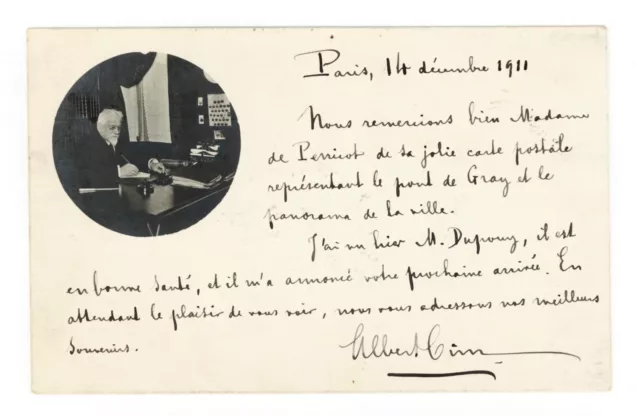 Paris, 14 décembre 1911
Nous remercions bien Madame
de Perricot de sa jolie carte postale
représentant le pont de Gray et le
panorama de la ville.
J'ai vu hier M. Dupouy, il est
en bonne santé, et il m'a annoncé votre prochaine arrivée. En
attendant le plaisir de vous voir, nous vous adressons nos meilleurs
souvenirs.
Albert Cim